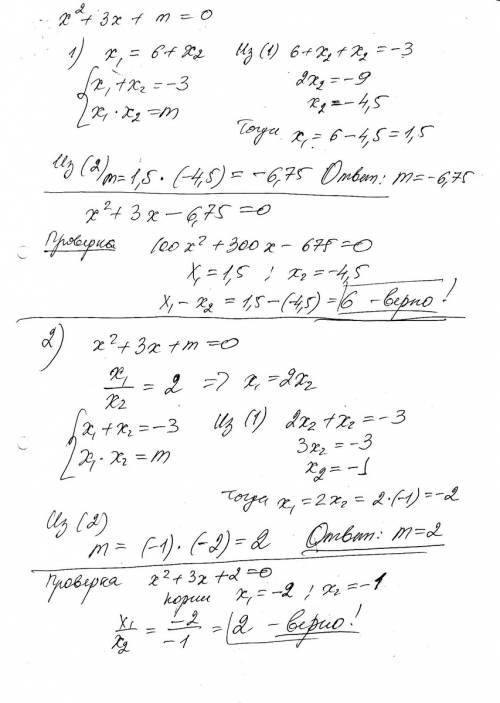 x² + 3x + m = 0
1) x₁ = 6 + x₂ Из (1) 6 + x₂ + x₂ = -3
{x₁ + x₂ = -3 2x₂ = -9
x₁ · x₂ = m x₂ = -4,5
Тогда x₁ = 6 - 4,5 = 1,5
Из (2) m = 1,5 · (-4,5) = -6,75 Ответ: m = -6,75
x² + 3x - 6,75 = 0
Проверка 100x² + 300x - 675 = 0
x₁ = 1,5 ; x₂ = -4,5
x₁ - x₂ = 1,5 - (-4,5) = 6 - верно!
2) x² + 3x + m = 0
x₁/x₂ = 2 => x₁ = 2x₂
{x₁ + x₂ = -3 Из (1) 2x₂ + x₂ = -3
x₁ · x₂ = m 3x₂ = -3
x₂ = -1
Тогда x₁ = 2x₂ = 2·(-1) = -2
Из (2)
m = (-1) · (-2) = 2 Ответ: m = 2
Проверка x² + 3x + 2 = 0
корни x₁ = -2 ; x₂ = -1
x₁/x₂ = -2/-1 = 2 - верно!